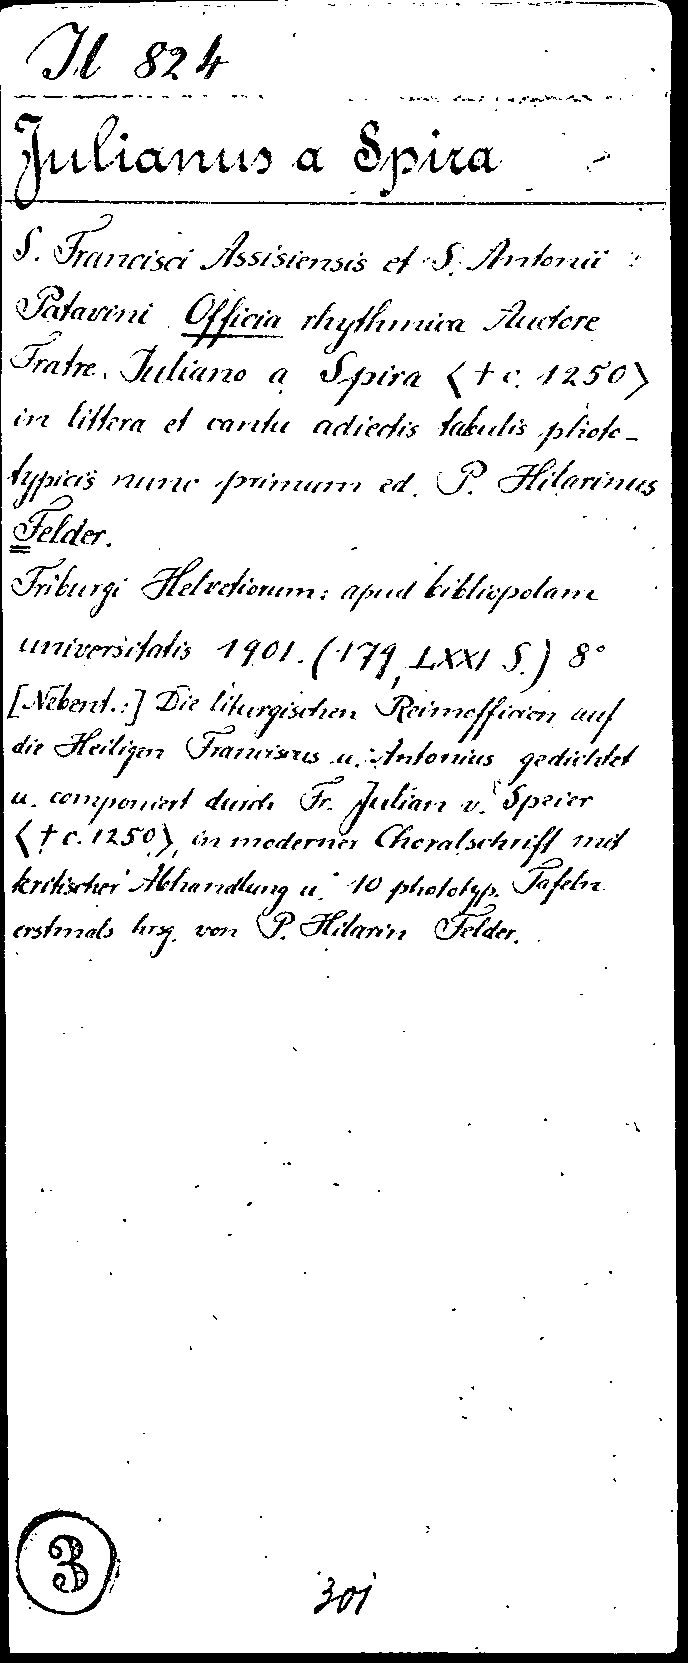 Il 824
Julianus a Spira
S. Francisci Assisiensis et S. Antonii
Patavini Officia rhythmica Auctore
Fratre Juliano a Spira ⟨† c. 1250⟩
in littera et cantu adiectis tabulis photo-
typicis nunc primum ed. P. Hilarinus
Felder.
Friburgi Helvetiorum: apud bibliopolam
universitatis 1901. (179, LXXI S.) 8°
[Nebent.:] Die liturgischen Reimofficien auf
die Heiligen Franciscus u. Antonius gedichtet
u. componiert durch Fr. Julian v. Speier
⟨† c. 1250⟩, in moderner Choralschrift mit
kritischer Abhandlung u. 10 phototyp. Tafeln
erstmals hrsg. von P. Hilarin Felder.
3
301